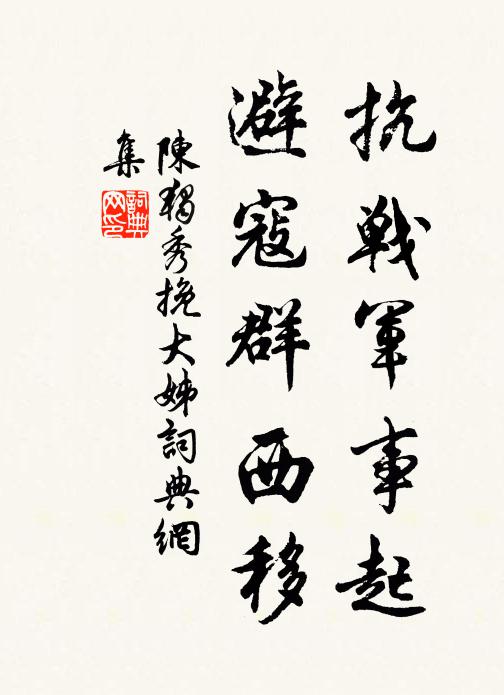 抗戰軍事起
避寇群西移
陳獨秀挽大姊詞典網
集
詞典
网印